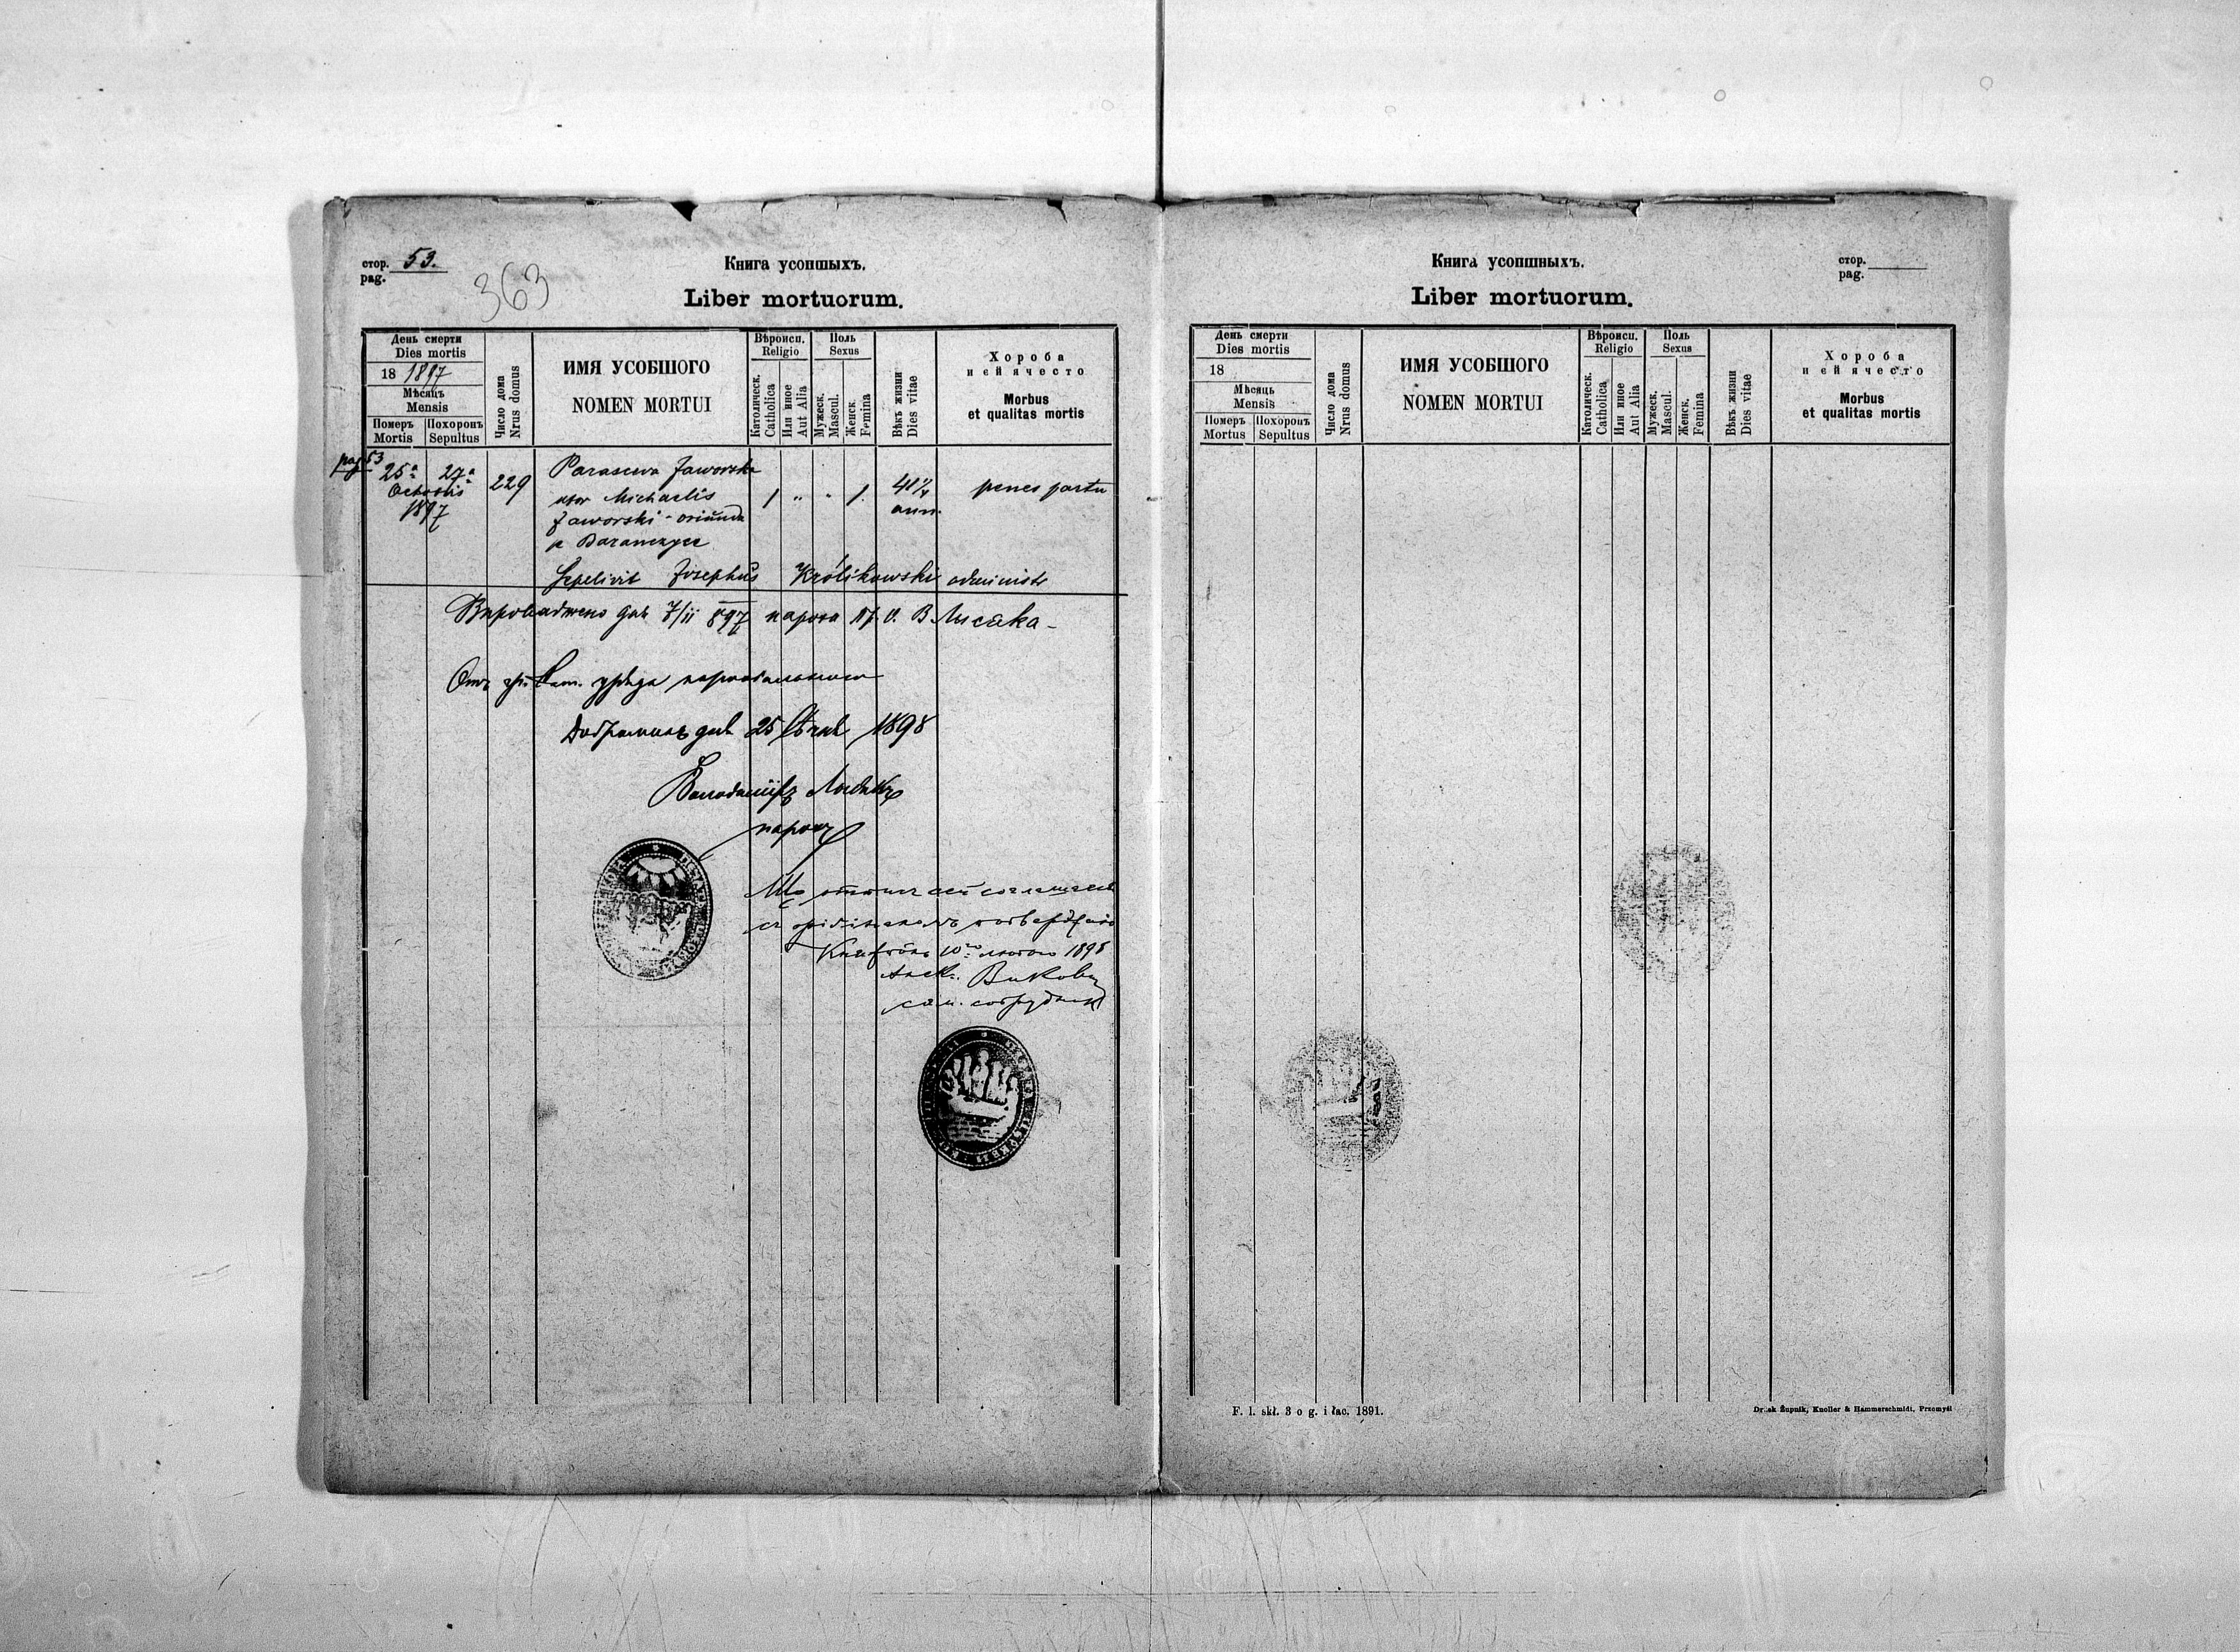 стор. 53.
pag.
363
Книга усопшыхъ.
Liber mortuorum.
День смерти
Dies mortis
18 1897
Мѣсяць
Mensis
Померъ
Mortis
Похоронъ
Sepultus
Число дома
Nrus domus
ИМЯ УСОБШОГО
NOMEN MORTUI
Вѣроисп.
Religio
Католическ.
Catholica
Или иное
Aut Alia
Поль
Sexus
Мужеск.
Mascul.
Женск.
Femina
Вѣкъ жизни
Dies vitae
Хороба
и ей ячесто
Morbus
et qualitas mortis
pag 53
25a 27a
Octobris
1897
229
Parascewa Jaworska
uxor Michaelis
Jaworski - oriunda
1 " " 1.
ann.
penes partu
Sepelivit Josephus Królikowski administr
Впроваджено днѣ 7/11 897 пароха В Лысака
Отъ гр. кат. уряда парохіального
Добромиль днѣ 25 Сѣчнѣ 1898
Володимiръ Лысакъ
парохъ
Що отпись сей согласуесь
съ оригиналомъ
10го лютого 1898
Алекс.
сотрудникъ
Книга усопшныхъ.
Liber mortuorum.
стор.
pag.
День смерти
Dies mortis
18
Мѣсяць
Mensis
Померъ
Mortus
Похоронъ
Sepultus
Число дома
Nrus domus
ИМЯ УСОБШОГО
NOMEN MORTUI
Вѣроисп.
Religio
Католическ.
Catholica
Или иное
Aut Alia
Поль
Sexus
Мужеск.
Mascul.
Женск.
Femina
Вѣкъ жизни
Dies vitae
Хороба
и ей ячесто
Morbus
et qualitas mortis
F. l. skł. 3 o g. i łac. 1891.
Druk Żupnik, Knoller & Hammerschmidt, Przemyśl